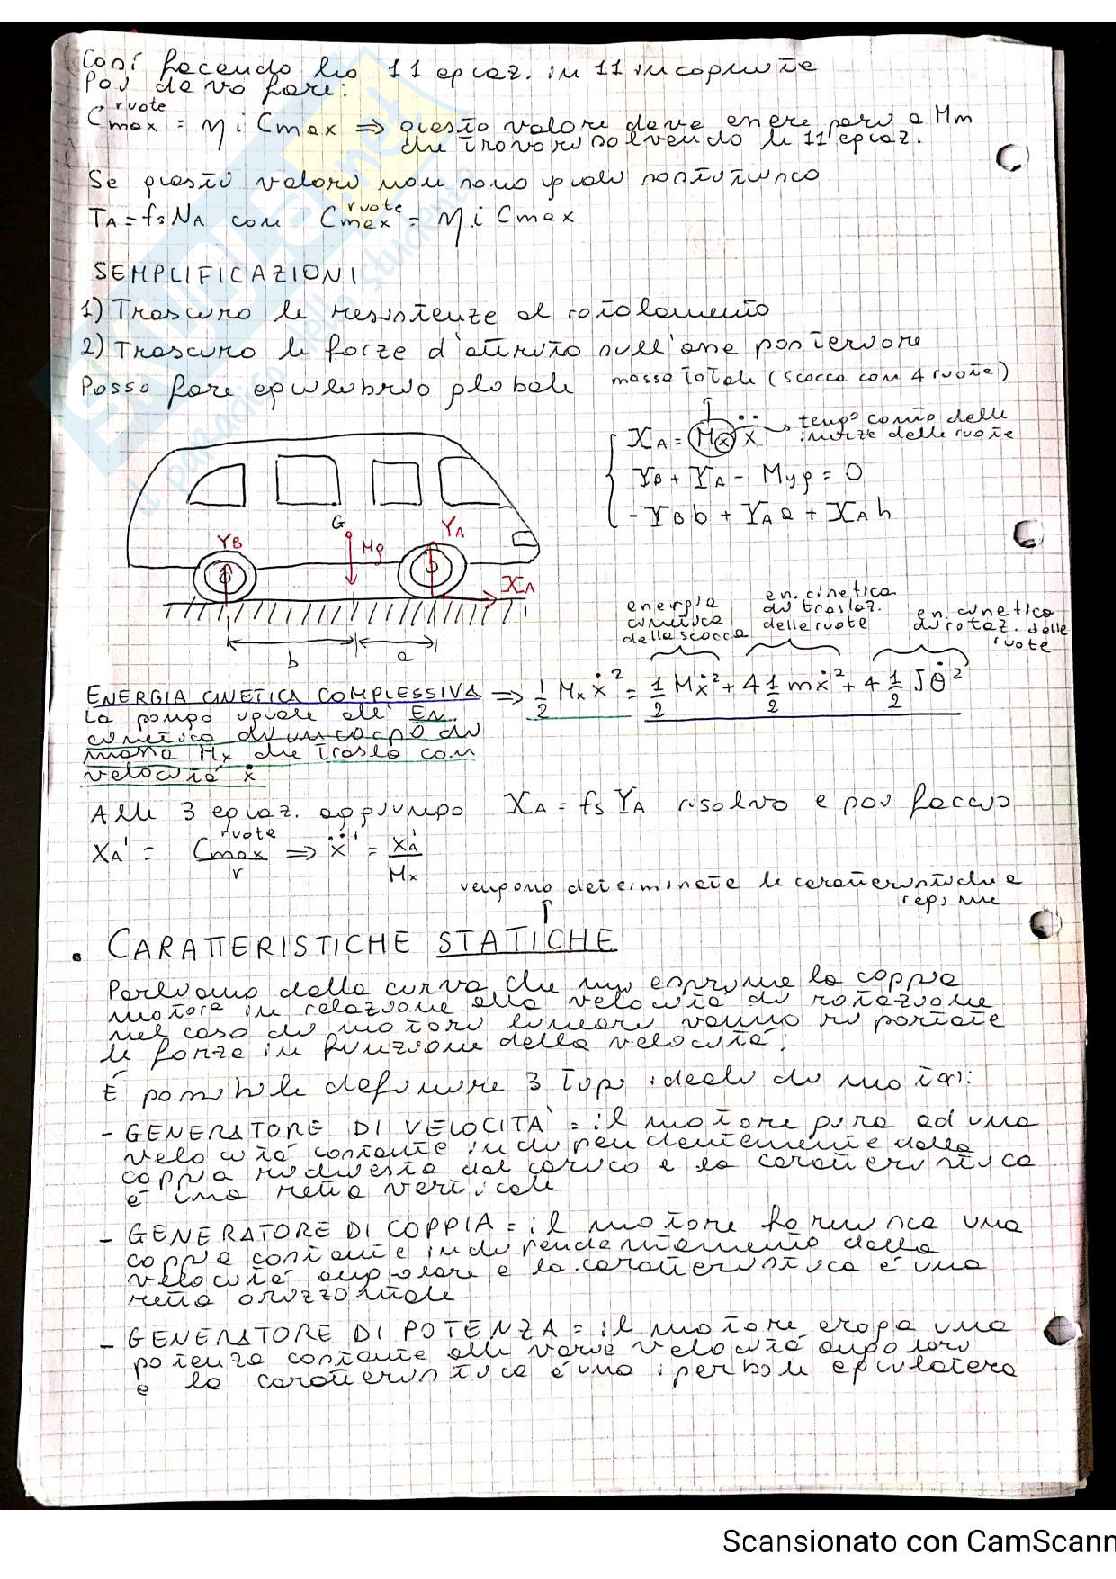 Così facendo ho 11 equaz. in 11 incognite
Poi devo fare:
C max ruote = η i Cmax ⇒ questo valore deve essere pari a Mm
che trovo risolvendo le 11 equaz.
Se questi valori non sono uguali sostituisco
TA = fs NA con C max ruote = η i Cmax
SEMPLIFICAZIONI
1) Trascuro le resistenze al rotolamento
2) Trascuro le forze d'attrito sull'asse posteriore
Posso fare equilibrio globale
massa totale (scocca con 4 ruote)
XA = Mx ẍ → tengo conto delle
inerzie delle ruote
YB + YA - Mg = 0
- YB b + YA a + XA h
YB
G
Mg
YA
XA
b
a
energia
cinetica
della scocca
en. cinetica
di traslaz.
delle ruote
en. cinetica
di rotaz. delle
ruote
ENERGIA CINETICA COMPLESSIVA ⇒ 1/2 Mx ẋ² = 1/2 Mẋ² + 4 1/2 mẋ² + 4 1/2 Jθ̇²
La pongo uguale all' En.
cinetica di un corpo di
massa Mx che trasla con
velocità ẋ
Alle 3 equaz. aggiungo XA = fs YA risolvo e poi faccio
XA' = C max ruote / r ⇒ ẍ' = XA' / Mx
vengono determinate le caratteristiche a
regime
• CARATTERISTICHE STATICHE
Parliamo della curva che mi esprime la coppia
motore in relazione alla velocità di rotazione
nel caso di motori lineari vanno riportate
le forze in funzione della velocità.
È possibile definire 3 tipi ideali di motori:
- GENERATORE DI VELOCITÀ = il motore gira ad una
velocità costante indipendentemente dalla
coppia richiesta dal carico e la caratteristica
è una retta verticale
- GENERATORE DI COPPIA = il motore fornisce una
coppia costante indipendentemente dalla
velocità angolare e la caratteristica è una
retta orizzontale
- GENERATORE DI POTENZA = il motore eroga una
potenza costante alle varie velocità angolari
e la caratteristica è una iperbole equilatera
Scansionato con CamScann